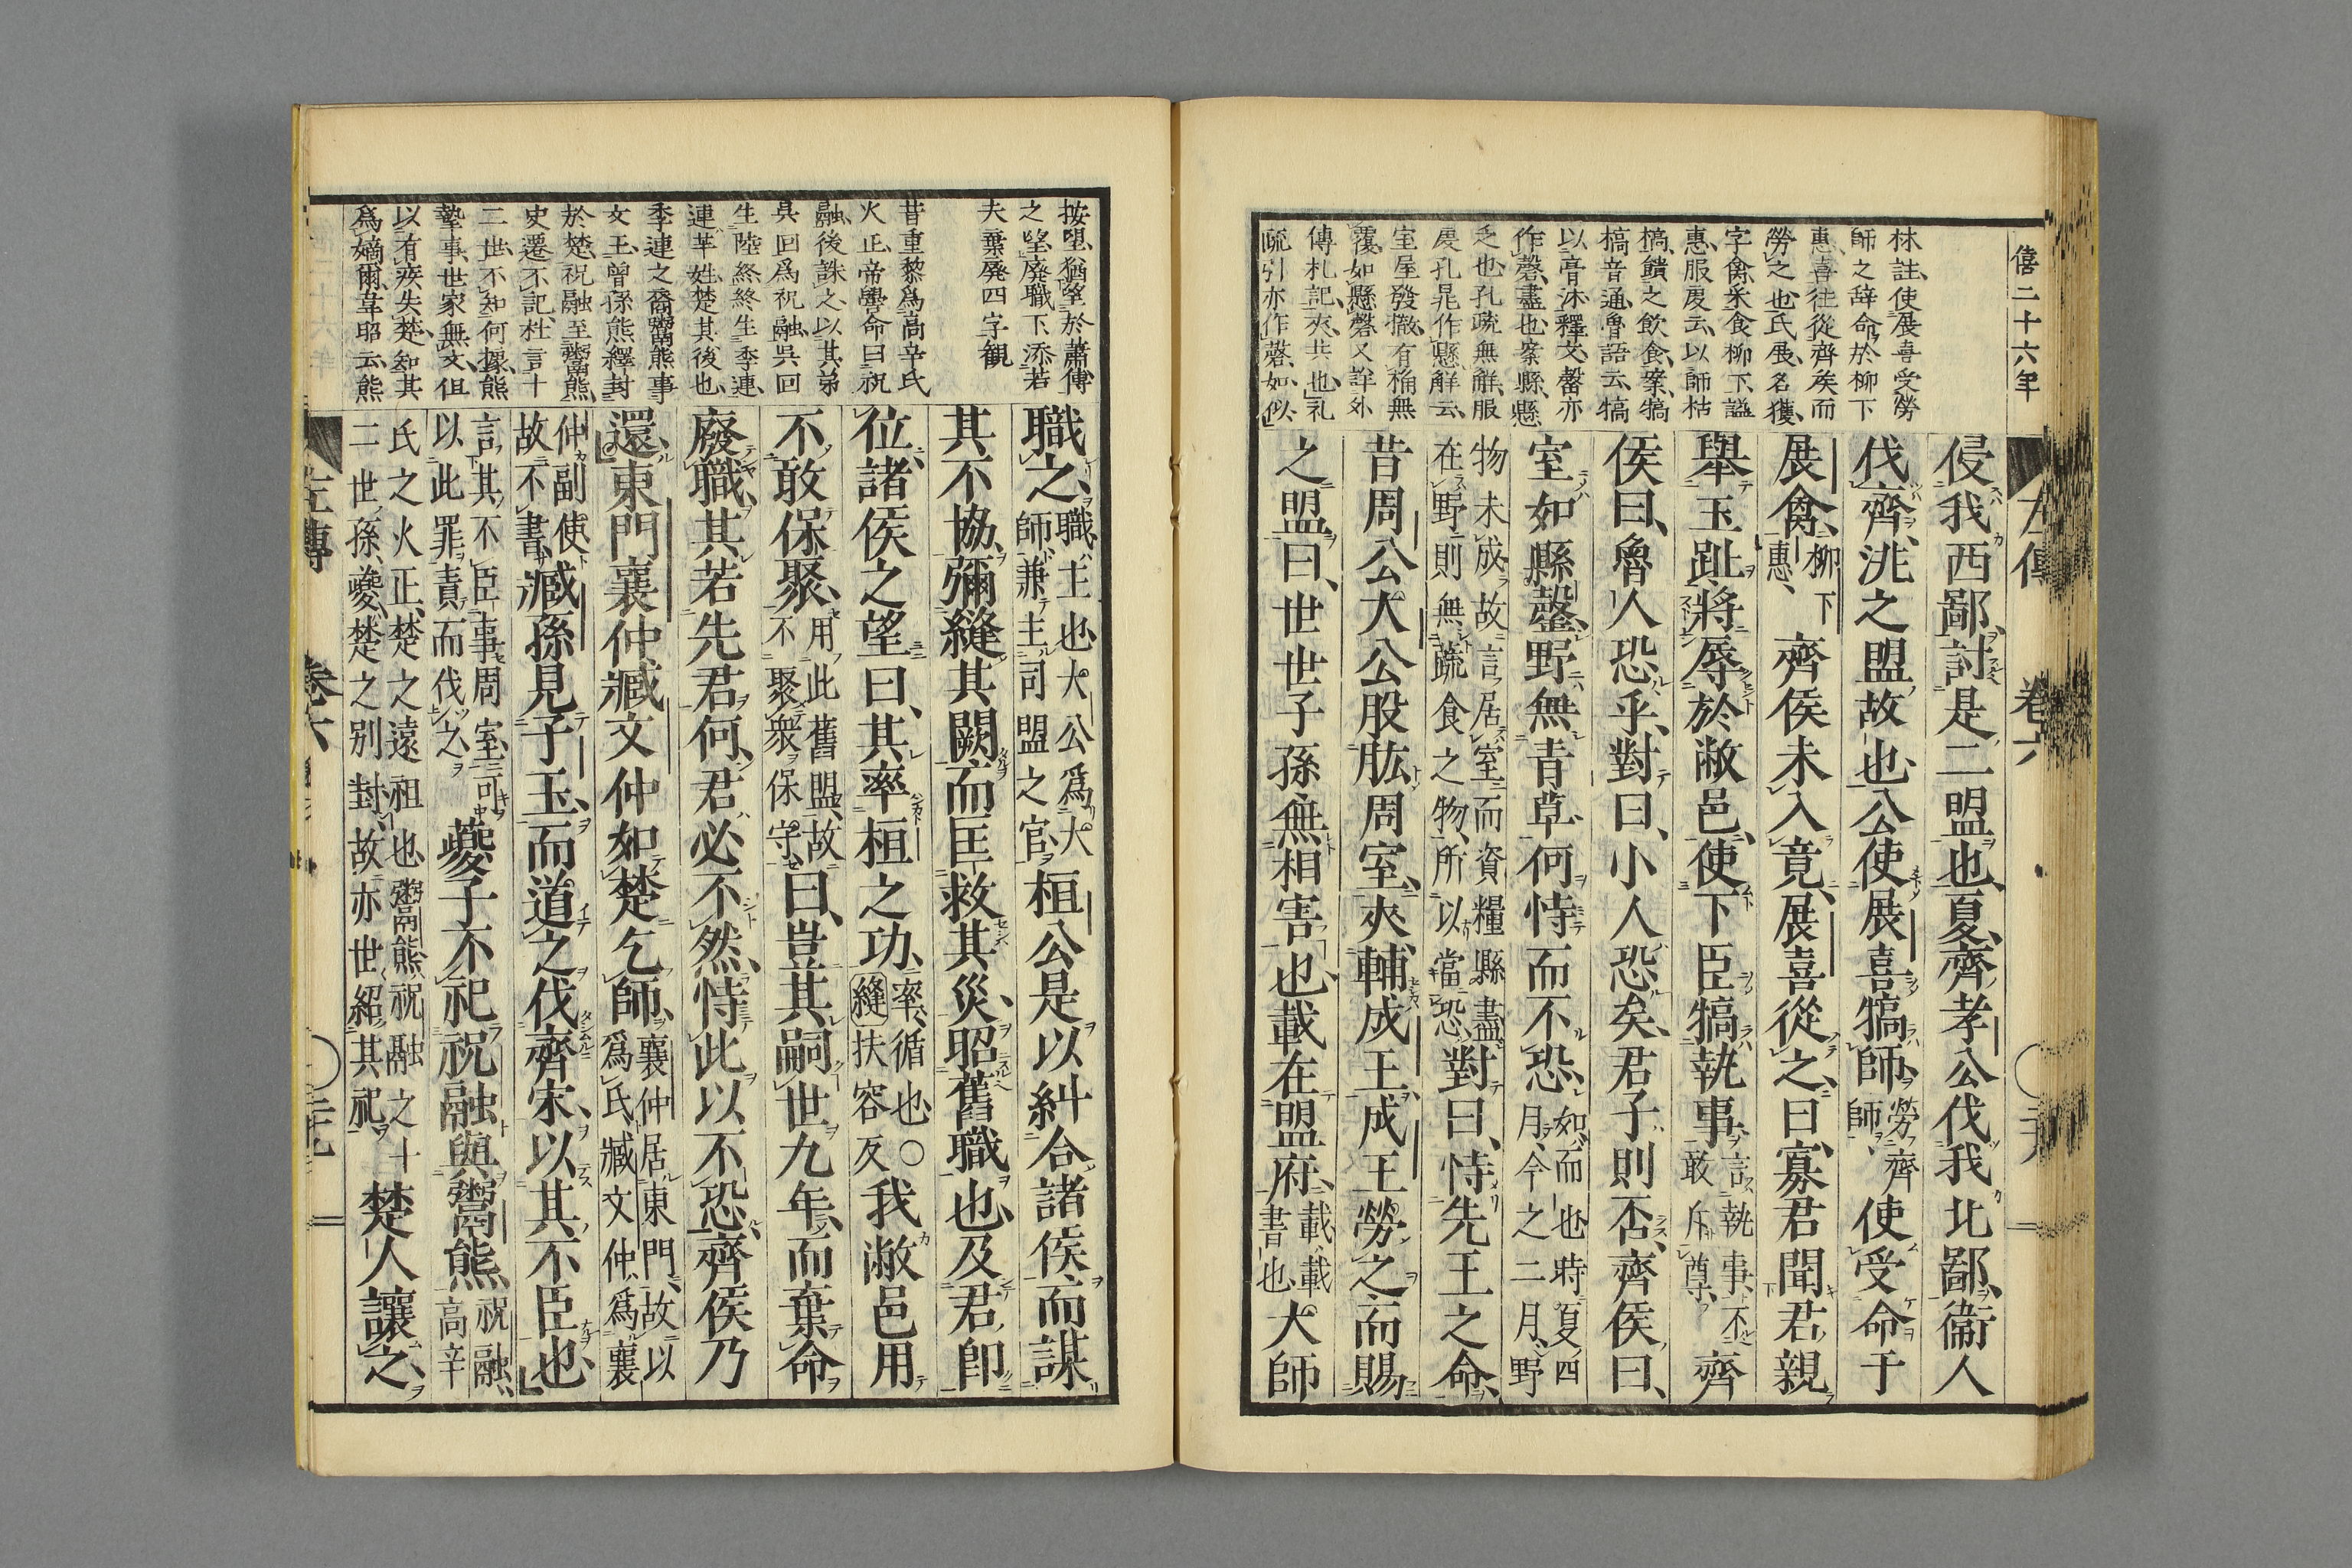 僖二十六年
左傳 卷六
林註使展喜受勞
師之辞命於柳下
惠喜往從齊矦而
勞之也氏展名獲
字禽釆食柳下謚
惠服虔云以師枯
槁饋之飲食案犒
槁音通魯語云犒
以膏沐釋文罄亦
作磬盡也案縣懸
乏也孔疏無解服
虔孔晁作懸解云
室屋發撤有桷無
覆如懸磬又詳外
傳札記夾共也礼
疏引亦作磬如似
侵我西鄙討是二盟也夏齊孝公伐我北鄙衞人
伐齊洮之盟故也公使展喜犒師勞齊師使受命于
展禽柳下惠齊侯未入竟展喜從之曰寡君聞君親
舉玉趾將辱於敝邑使下臣犒執事言執事不敢斥尊齊
侯曰魯人恐乎對曰小人恐矣君子則否齊侯曰
室如縣罄野無青草何恃而不恐如而也時夏四月今之二月野
物未成故言居室而資糧縣盡在野則無蔬食之物所以當恐對曰恃先王之命
昔周公大公股肱周室夾輔成王成王勞之而賜
之盟曰世世子孫無相害也載在盟府載載書也大師
按望猶望於蕭傳
之望廢職下添若
夫棄廃四字観
昔重黎為高辛氏
火正帝嚳命曰祝
融後誅之以其弟
吳回為祝融吳回
生陸終終生季連
連芈姓楚其後也
季連之裔鬻熊事
文王曾孫熊繹封
於楚祝融至鬻熊
史遷不記杜言十
二世不知何據熊
摯事世家無文但
以有疾失楚知其
為嫡爾韋昭云熊
職之職主也大公為大師兼主司盟之官桓公是以糾合諸侯而謀
其不協彌縫其闕而匡救其災昭舊職也及君卽
位諸侯之望曰其率桓之功率循也○縫扶容反我敝邑用
不敢保聚用此舊盟故不聚衆保守曰豈其嗣世九年而棄命
廢職其若先君何君必不然恃此以不恐齊侯乃
還東門襄仲臧文仲如楚乞師襄仲居東門故以為氏臧文仲為襄
仲副使故不書臧孫見子玉而道之伐齊宋以其不臣也
言其不臣事周室可以此罪責而伐之夔子不祀祝融與鬻熊祝融高辛
氏之火正楚之遠祖也鬻熊祝融之十二世孫夔楚之別封故亦世紹其祀楚人讓之
左傳 卷六